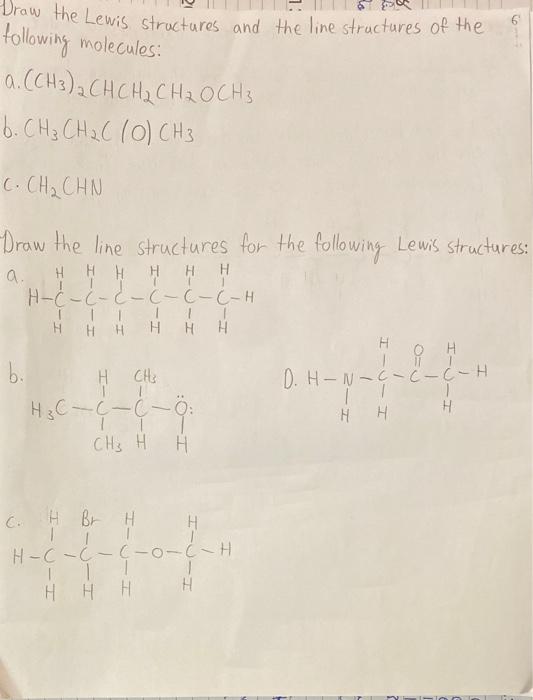 Draw the Lewis structures and the line structures of the
following molecules:
a. (CH3)2CHCH2CH2OCH3
b. CH3CH2C(O)CH3
c. CH2CHN
Draw the line structures for the following Lewis structures:
a.
H H H H H H
H-C-C-C-C-C-C-H
H H H H H H
b.
H CH3
H3C-C-C-Ö:
CH3 H H
D.
H O H
H-N-C-C-C-H
H H H
c.
H Br H H
H-C-C-C-O-C-H
H H H H